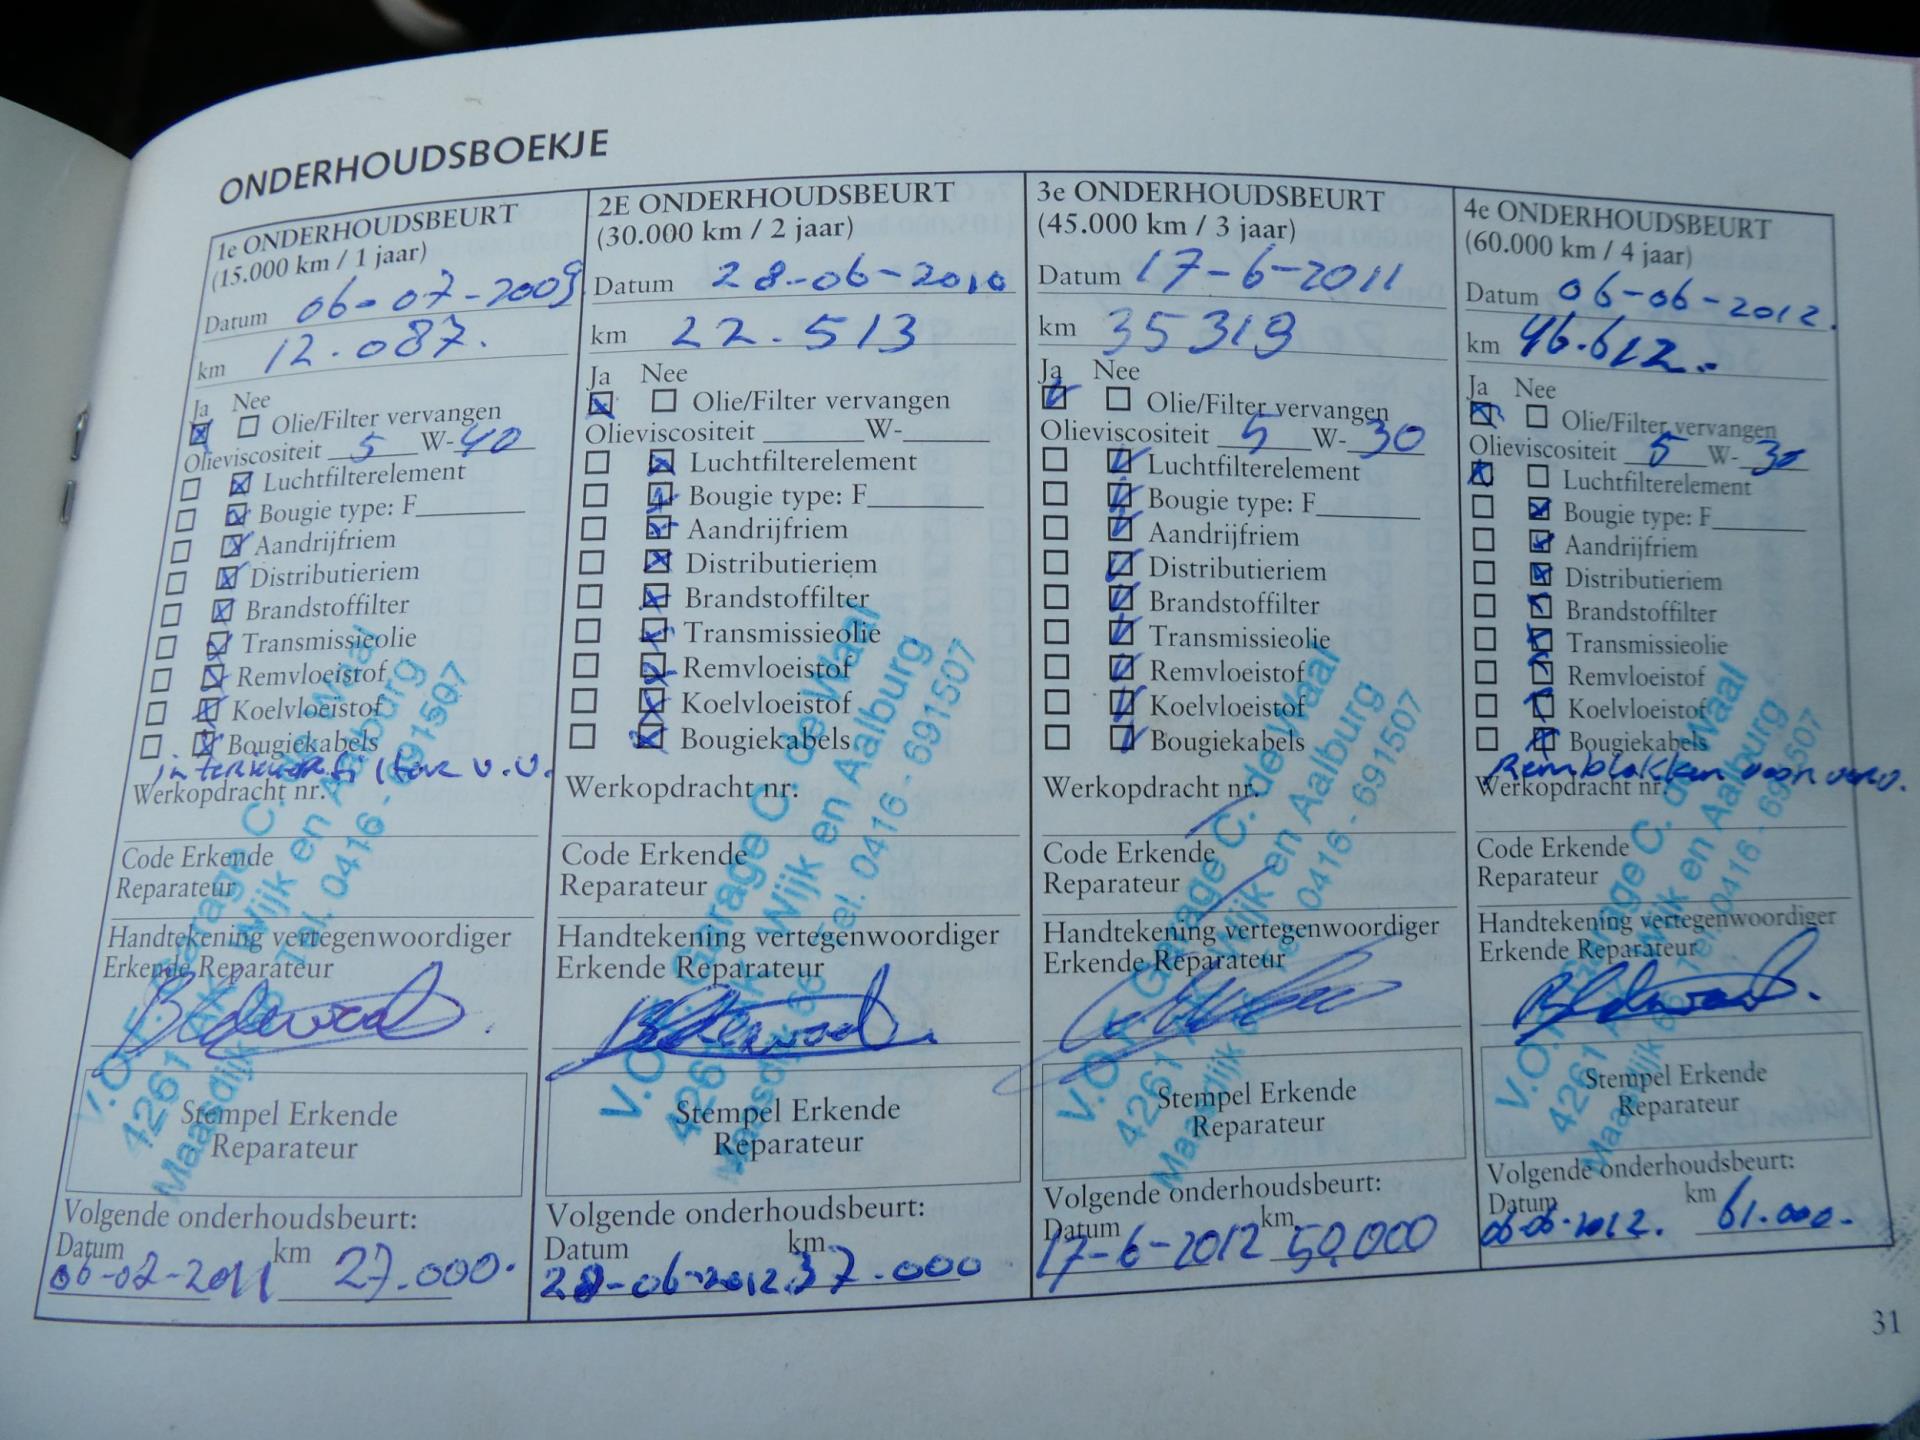 ONDERHOUDSBOEKJE
1e ONDERHOUDSBEURT
(15.000 km / 1 jaar)
Datum 06-07-2009
km 12.087.
Ja Nee
Olie/Filter vervangen
Olieviscositeit 5 W-40
Luchtfilterelement
Bougie type: F
Aandrijfriem
Distributieriem
Brandstoffilter
Transmissieolie
Remvloeistof
Koelvloeistof
Bougiekabels
interieurfilter v.v.
Werkopdracht nr.
Code Erkende
Reparateur
Handtekening vertegenwoordiger
Erkende Reparateur
V.O.F. Garage C. de Waal
4261 AK Wijk en Aalburg
Maasdijk 66 Tel. 0416 - 691507
Stempel Erkende
Reparateur
Volgende onderhoudsbeurt:
Datum km
27.000.
2E ONDERHOUDSBEURT
(30.000 km / 2 jaar)
Datum 28-06-2010
km 22.513
Ja Nee
Olie/Filter vervangen
Olieviscositeit W-
Luchtfilterelement
Bougie type: F
Aandrijfriem
Distributieriem
Brandstoffilter
Transmissieolie
Remvloeistof
Koelvloeistof
Bougiekabels
Werkopdracht nr.
Code Erkende
Reparateur
Handtekening vertegenwoordiger
Erkende Reparateur
V.O.F. Garage C. de Waal
4261 AK Wijk en Aalburg
Maasdijk 66 Tel. 0416 - 691507
Stempel Erkende
Reparateur
Volgende onderhoudsbeurt:
Datum km
28-06-2012. 37.000
3e ONDERHOUDSBEURT
(45.000 km / 3 jaar)
Datum 17-6-2011
km 35319
Ja Nee
Olie/Filter vervangen
Olieviscositeit 5 W-30
Luchtfilterelement
Bougie type: F
Aandrijfriem
Distributieriem
Brandstoffilter
Transmissieolie
Remvloeistof
Koelvloeistof
Bougiekabels
Werkopdracht nr.
Code Erkende
Reparateur
Handtekening vertegenwoordiger
Erkende Reparateur
V.O.F. Garage C. de Waal
4261 AK Wijk en Aalburg
Maasdijk 66 Tel. 0416 - 691507
Stempel Erkende
Reparateur
Volgende onderhoudsbeurt:
Datum km
17-6-2012 50,000
4e ONDERHOUDSBEURT
(60.000 km / 4 jaar)
Datum 06-06-2012.
km 46.612.
Ja Nee
Olie/Filter vervangen
Olieviscositeit 5 W-30
Luchtfilterelement
Bougie type: F
Aandrijfriem
Distributieriem
Brandstoffilter
Transmissieolie
Remvloeistof
Koelvloeistof
Bougiekabels
Remblokken voor verv.
Werkopdracht nr.
Code Erkende
Reparateur
Handtekening vertegenwoordiger
Erkende Reparateur
V.O.F. Garage C. de Waal
4261 AK Wijk en Aalburg
Maasdijk 66 Tel. 0416 - 691507
Stempel Erkende
Reparateur
Volgende onderhoudsbeurt:
Datum km
06-06-2012. 61.000.
31